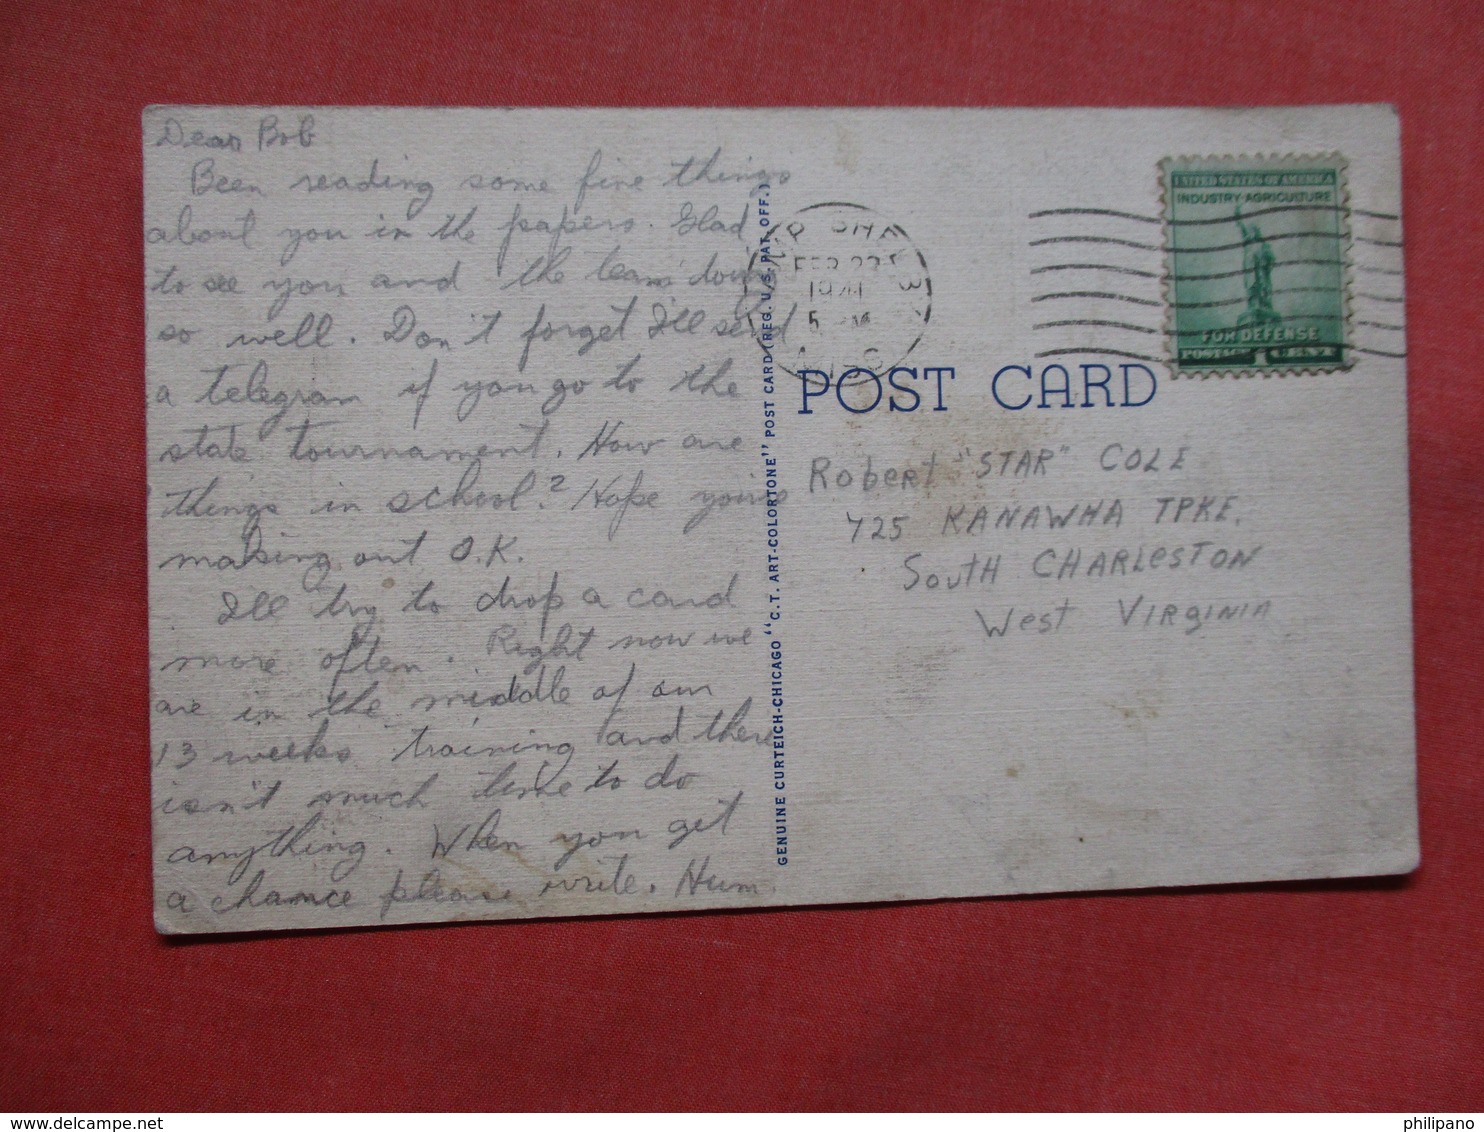 Dear Bob
Been reading some fine things
about you in the papers. Glad
to see you and the team doing
so well. Don't forget I'll send
a telegram if you go to the
state tournament. How are
things in school? Hope you're
making out O.K.
I'll try to drop a card
more often. Right now we
are in the middle of our
13 weeks training and there
isn't much time to do
anything. When you get
a chance please write. Hum.
GENUINE CURTEICH-CHICAGO "C.T. ART-COLORTONE" POST CARD (REG. U.S. PAT. OFF.)
CAMP SHELBY
FEB 23
1941
5 PM
MISS
UNITED STATES OF AMERICA
INDUSTRY-AGRICULTURE
FOR DEFENSE
POSTAGE 1 CENT
POST CARD
Robert "STAR" COLE
725 KANAWHA TPKE.
South CHARLESTON
West VIRGINIA
philipano